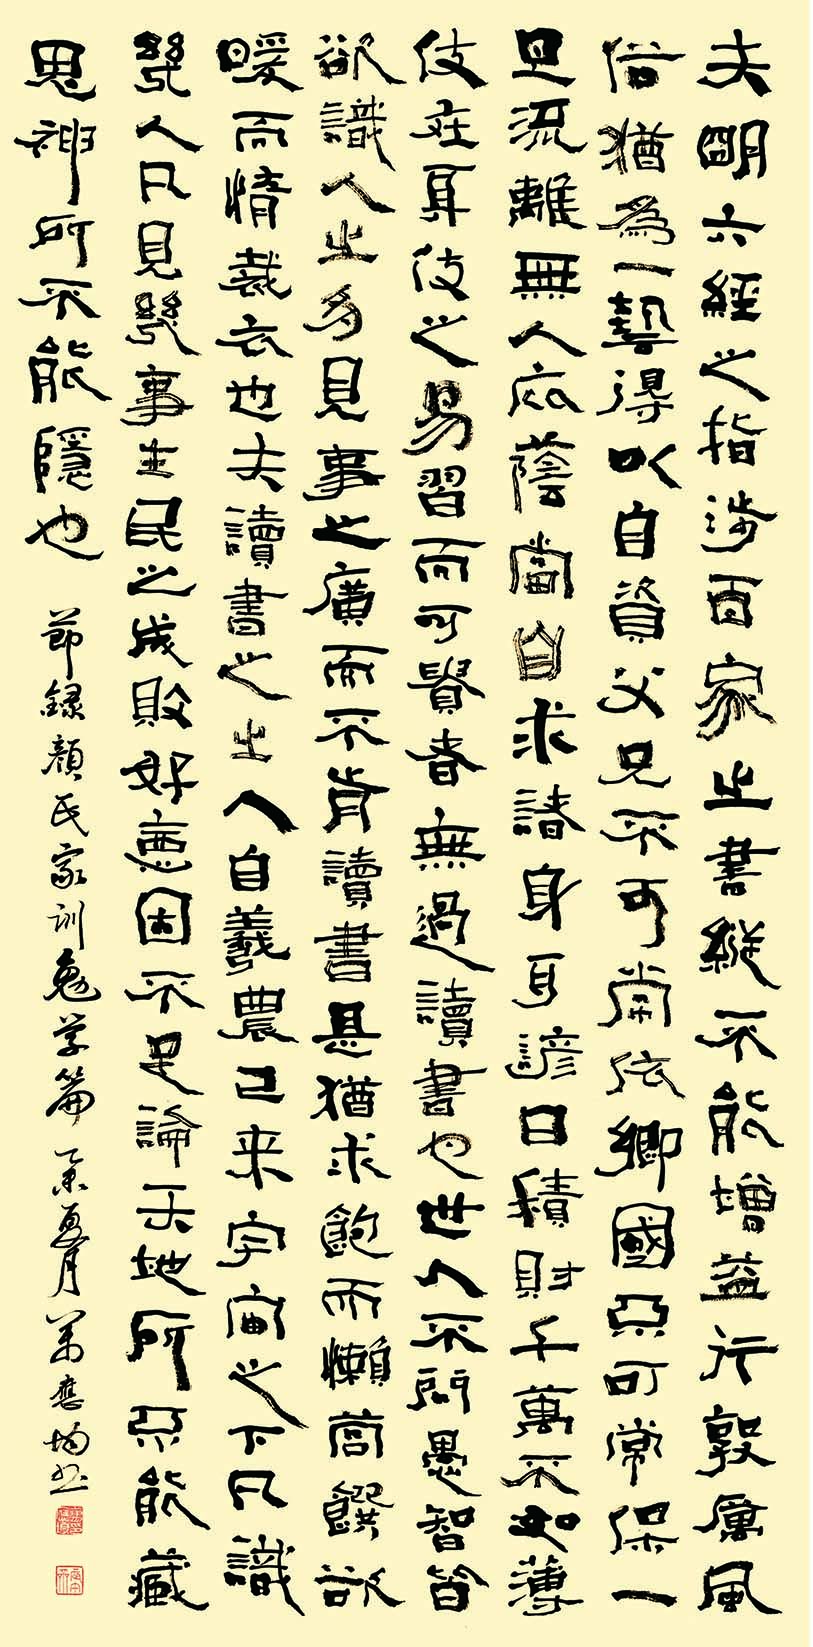 夫明六經之指涉百家之書縱不能增益行敦厲風
俗猶為一藝得以自資父兄不可常依鄉國不可常保一
旦流離無人庇蔭當自求諸身耳諺曰積財千萬不如薄
伎在身伎之易習而可貴者無過讀書也世人不問愚智皆
欲識人之多見事之廣而不肯讀書是猶求飽而懶營饌欲
暖而惰裁衣也夫讀書之之人自羲農已来宇宙之下凡識
幾人凡見幾事生民之成敗好惡固不足論天地所不能藏
鬼神所不能隱也
節録顏氏家训勉学篇 乙未夏月 萬應均书